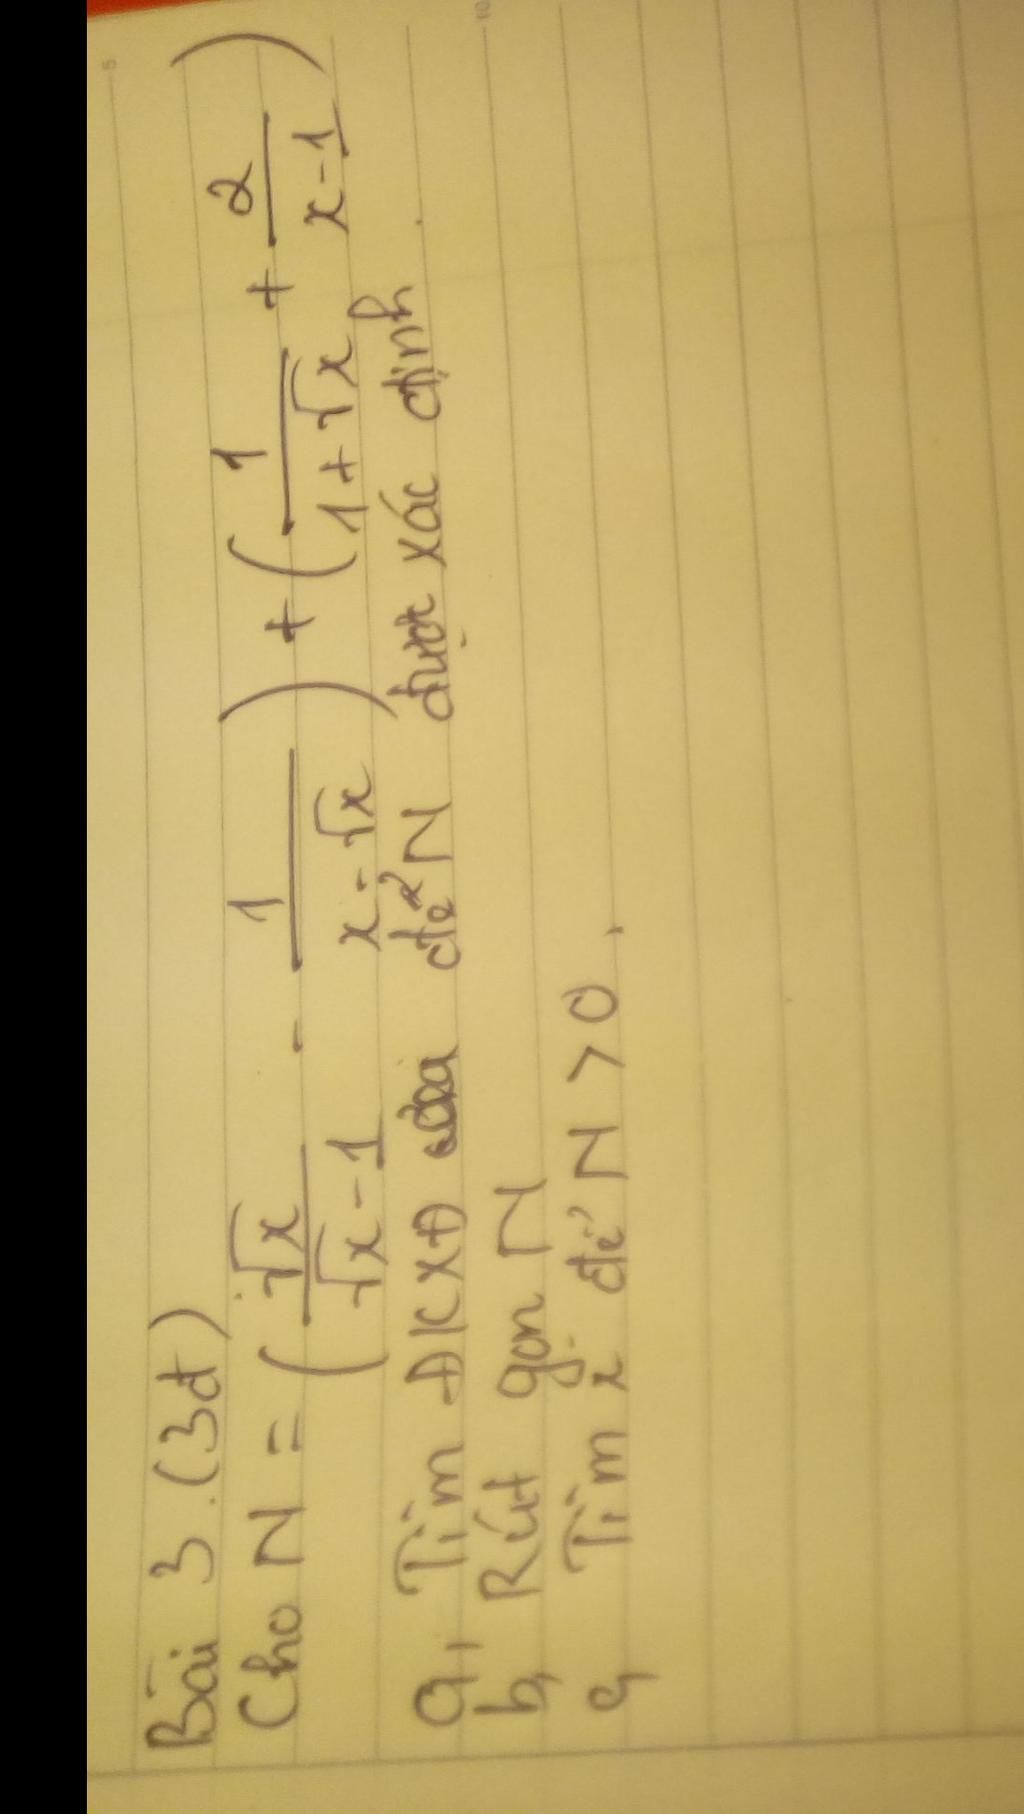 Bài 3. (3đ)
Cho N = (√x/(√x - 1) - 1/(x - √x)) + (1/(1 + √x) + 2/(x - 1))
a, Tìm ĐKXĐ của để N được xác định.
b, Rút gọn N
c, Tìm x để N > 0.
5
10